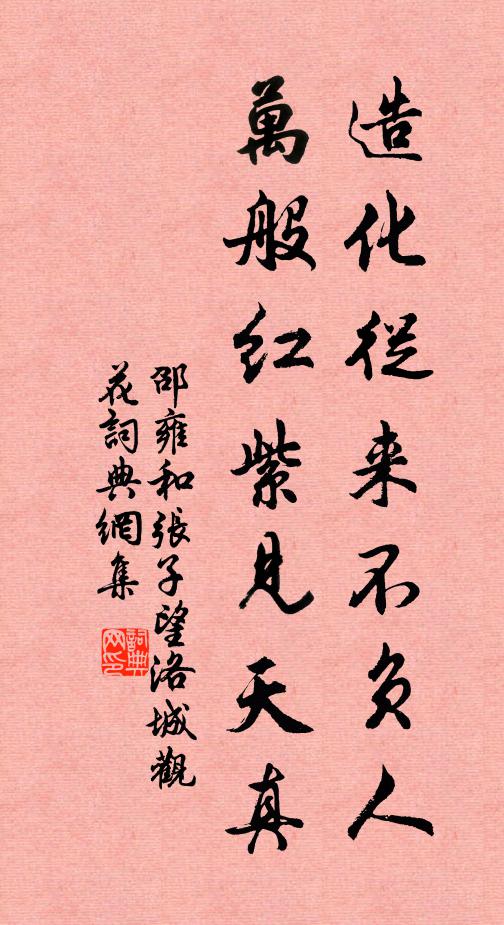 造化從来不负人
萬般红紫見天真
邵雍和張子望洛城觀
花詞典網集
詞典
网印